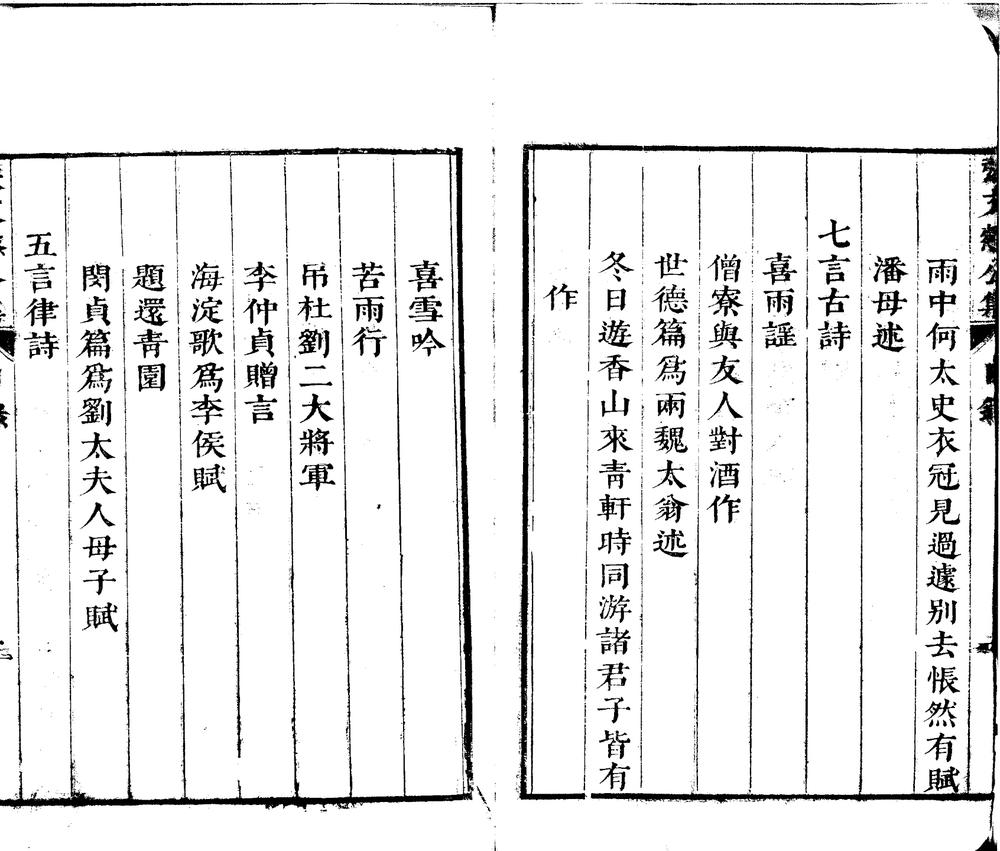 雨中何太史衣冠見過遽别去悵然有賦
潘母述
七言古詩
喜雨謡
僧寮與友人對酒作
世德篇爲兩魏太翁述
冬日遊香山來靑軒時同游諸君子皆有
作
喜雪吟
苦雨行
吊杜劉二大將軍
李仲貞贈言
海淀歌爲李侯賦
題還靑園
閔貞篇爲劉太夫人母子賦
五言律詩